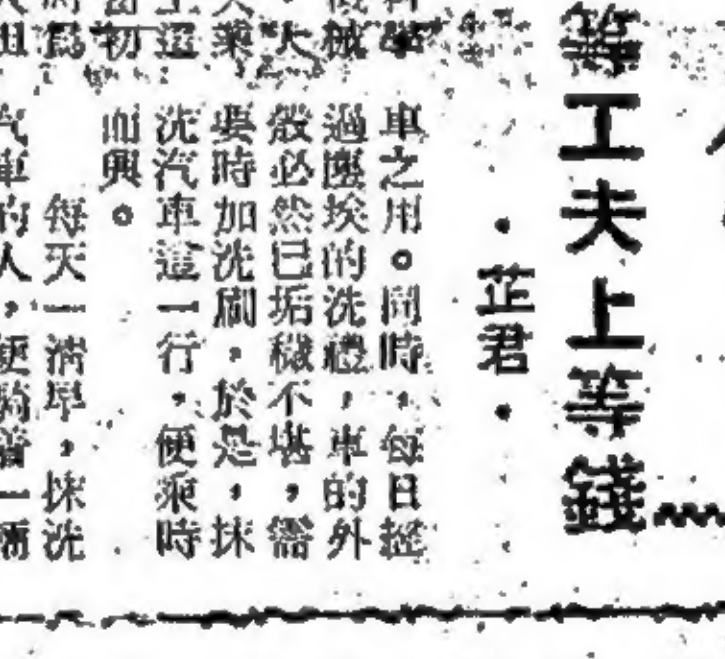 等工夫上等錢
·芷君·
車之用。同時，每日經
過塵埃的洗禮，車的外
殼必然已垢穢不堪，需
要時加洗刷，於是，抹
洗汽車這一行，便乘時
而興。
每天一淸早，抹洗
汽車的人，便騎着一輛